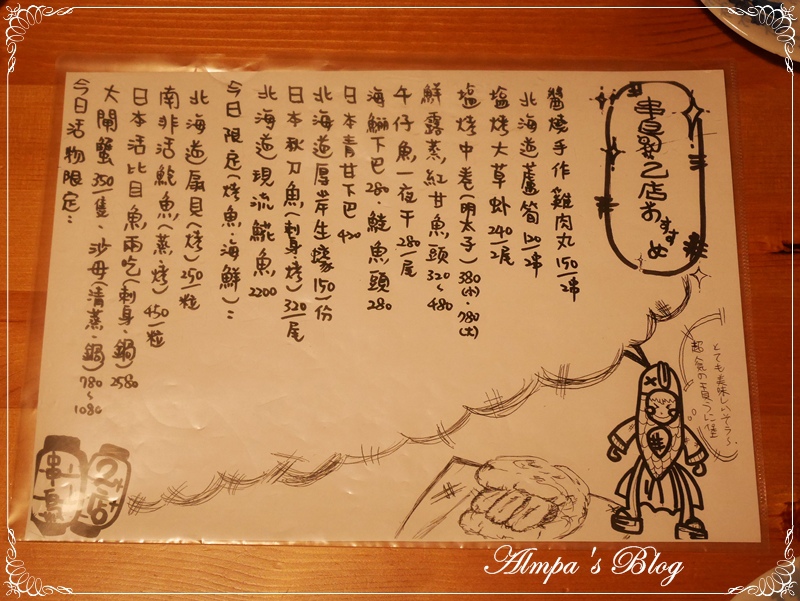 串島2店おすすめ
醬燒手作雞肉丸 150/串
北海道蘆筍 120/串
塩烤大草蝦 240/尾
塩烤中卷(明太子) 380(小)·780(大)
鮮露蒸紅甘魚頭 320~480
午仔魚一夜干 280/尾
海鱺下巴 280·鮭魚頭 280
日本青甘下巴 420
北海道厚岸生蠔 150/份
日本秋刀魚(刺身·烤) 320/尾
北海道現流魚 2200
今日限定(烤魚·海鮮):
北海道扇貝(烤) 250/粒
南非活鮑魚(蒸·烤) 450/粒
日本活比目魚兩吃(刺身·鍋) 2580
大閘蟹 350/隻·沙母(清蒸·鍋) 780~1080
今日活物限定:
とても美味しいそう~
串
2店
Almpa's Blog